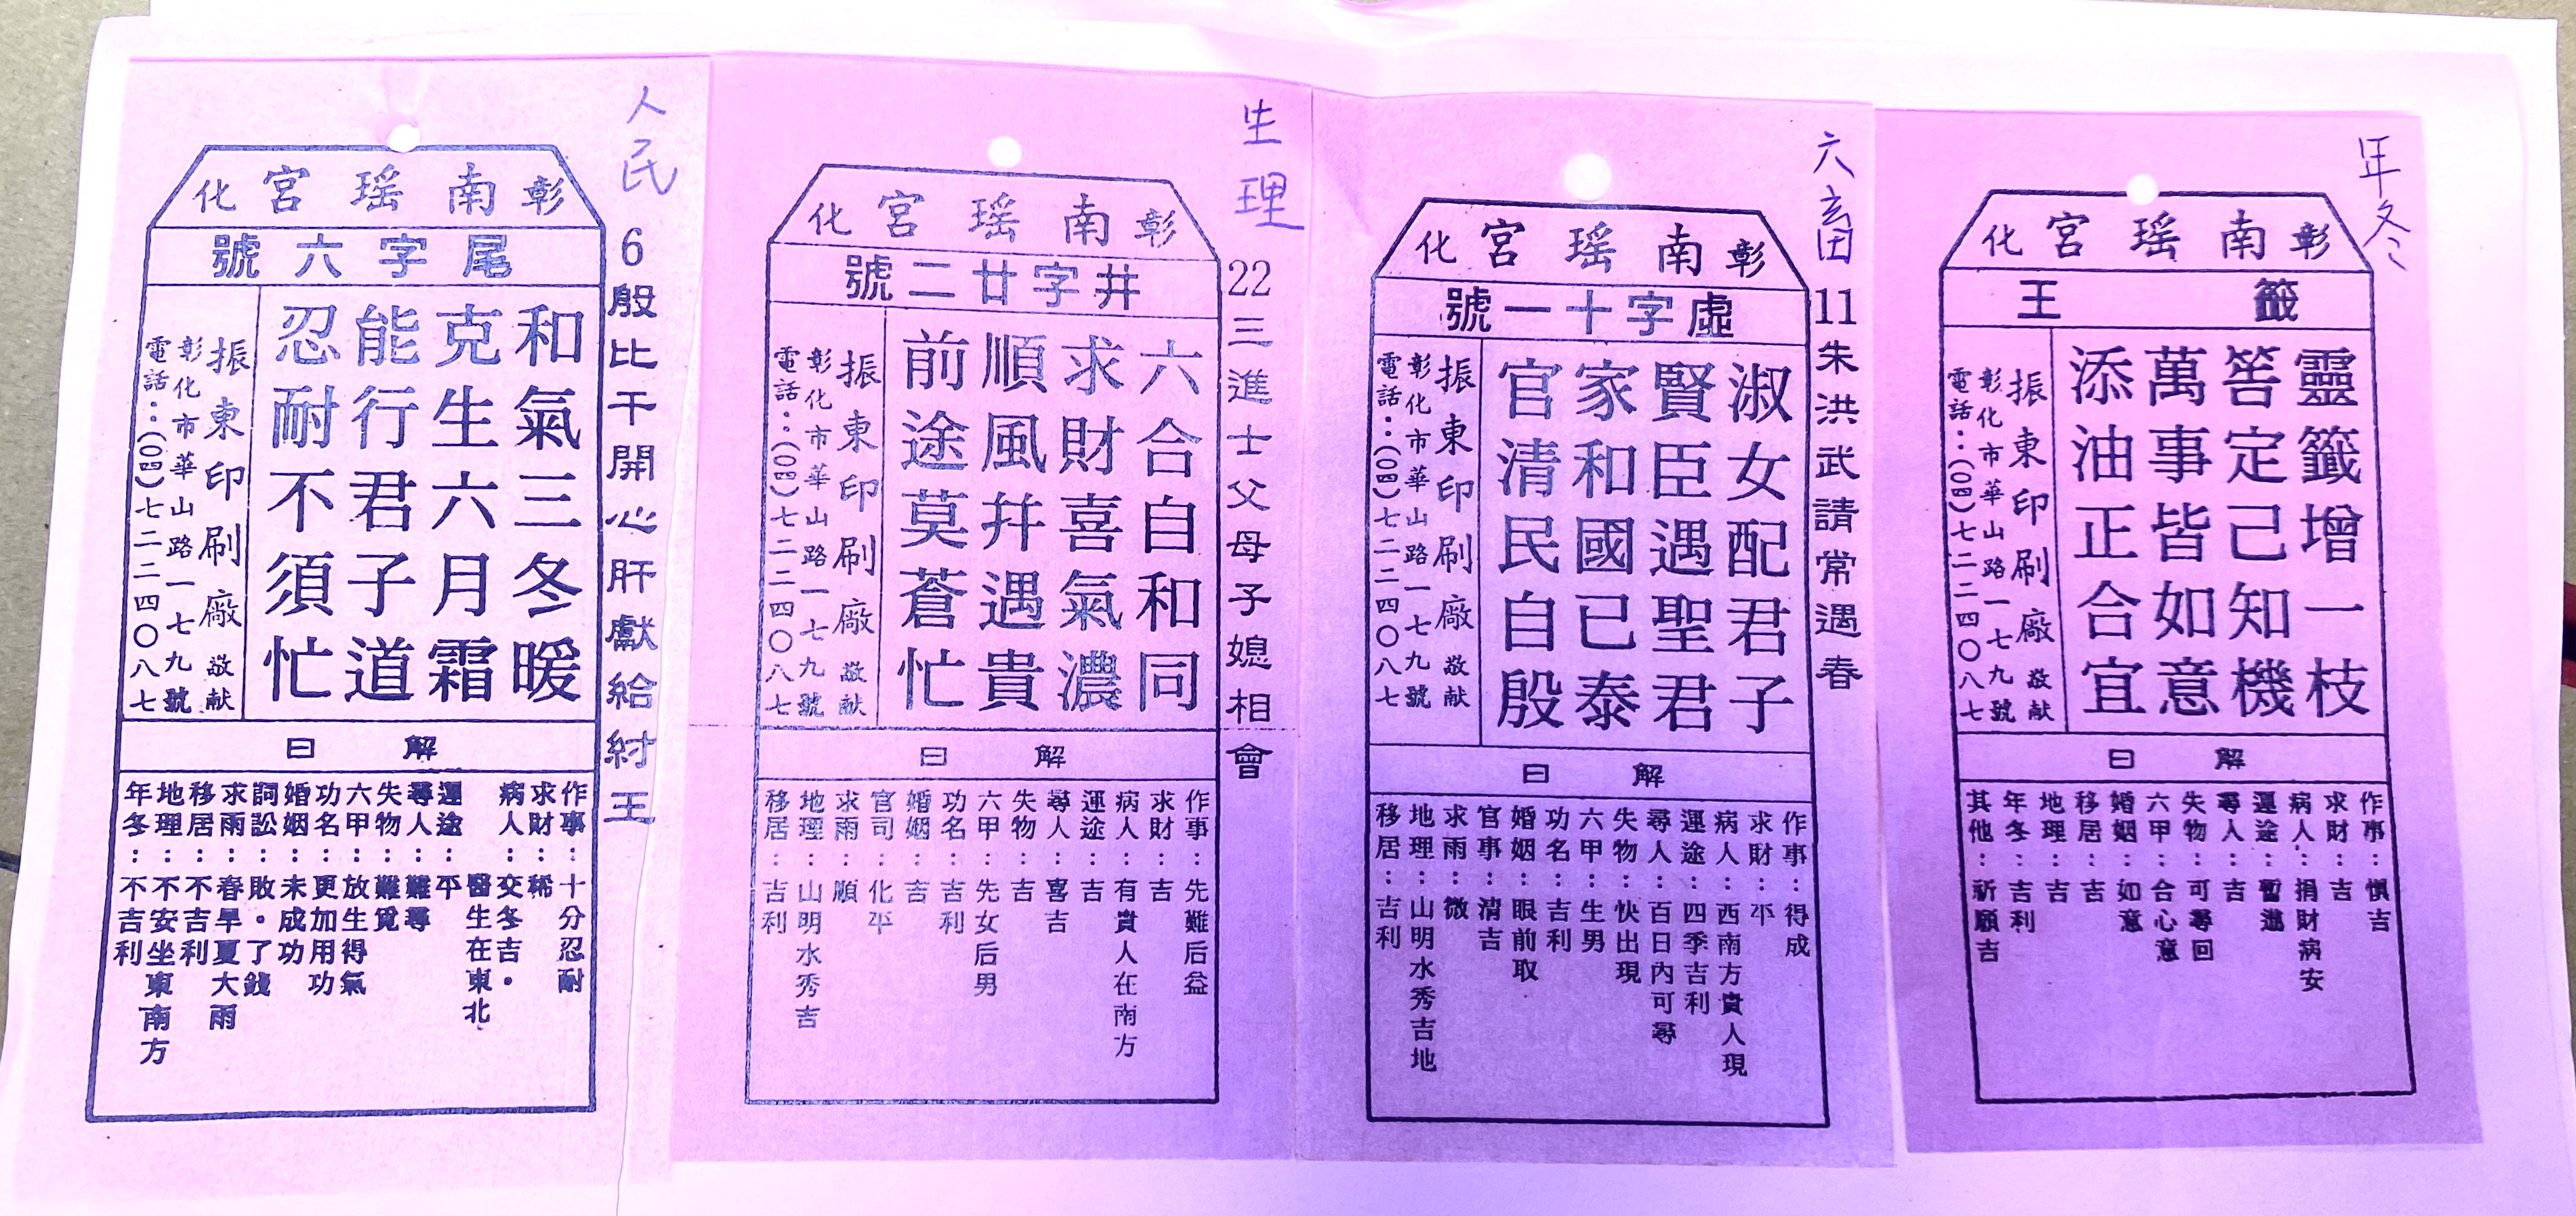 年冬
彰化南瑤宮
籤王
靈籤增一枝
筶定己知機
萬事皆如意
添油正合宜
振東印刷廠敬献
彰化市華山路一七九號
電話：（〇四）七二二四〇八七
解曰
作事：慎吉
求財：吉
病人：捐財病安
運途：暫進
尋人：吉
失物：可尋回
六甲：合心意
婚姻：如意
移居：吉
地理：吉
年冬：吉利
其他：祈願吉
六畜
11朱洪武請常遇春
彰化南瑤宮
虛字十一號
淑女配君子
賢臣遇聖君
家和國已泰
官清民自殷
振東印刷廠敬献
彰化市華山路一七九號
電話：（〇四）七二二四〇八七
解曰
作事：得成
求財：平
病人：西南方貴人現
運途：四季吉利
尋人：百日內可尋
失物：快出現
六甲：生男
功名：吉利
婚姻：眼前取
官事：清吉
求雨：微
地理：山明水秀吉地
移居：吉利
生理
22三進士父母子媳相會
彰化南瑤宮
井字廿二號
六合自和同
求財喜氣濃
順風幷遇貴
前途莫蒼忙
振東印刷廠敬献
彰化市華山路一七九號
電話：（〇四）七二二四〇八七
解曰
作事：先難后益
求財：吉
病人：有貴人在南方
運途：吉
尋人：喜吉
失物：吉
六甲：先女后男
功名：吉利
婚姻：吉
官司：化平
求雨：順
地理：山明水秀吉
移居：吉利
人民
6殷比干開心肝獻給紂王
彰化南瑤宮
尾字六號
和氣三冬暖
克生六月霜
能行君子道
忍耐不須忙
振東印刷廠敬献
彰化市華山路一七九號
電話：（〇四）七二二四〇八七
解曰
作事：十分忍耐
求財：稀
病人：交冬吉．
醫生在東北
運途：平
尋人：難尋
失物：難覓
六甲：放生得氣
功名：更加用功
婚姻：未成功
詞訟：敗．了錢
求雨：春旱夏大雨
移居：不吉利
地理：不安坐東南方
年冬：不吉利